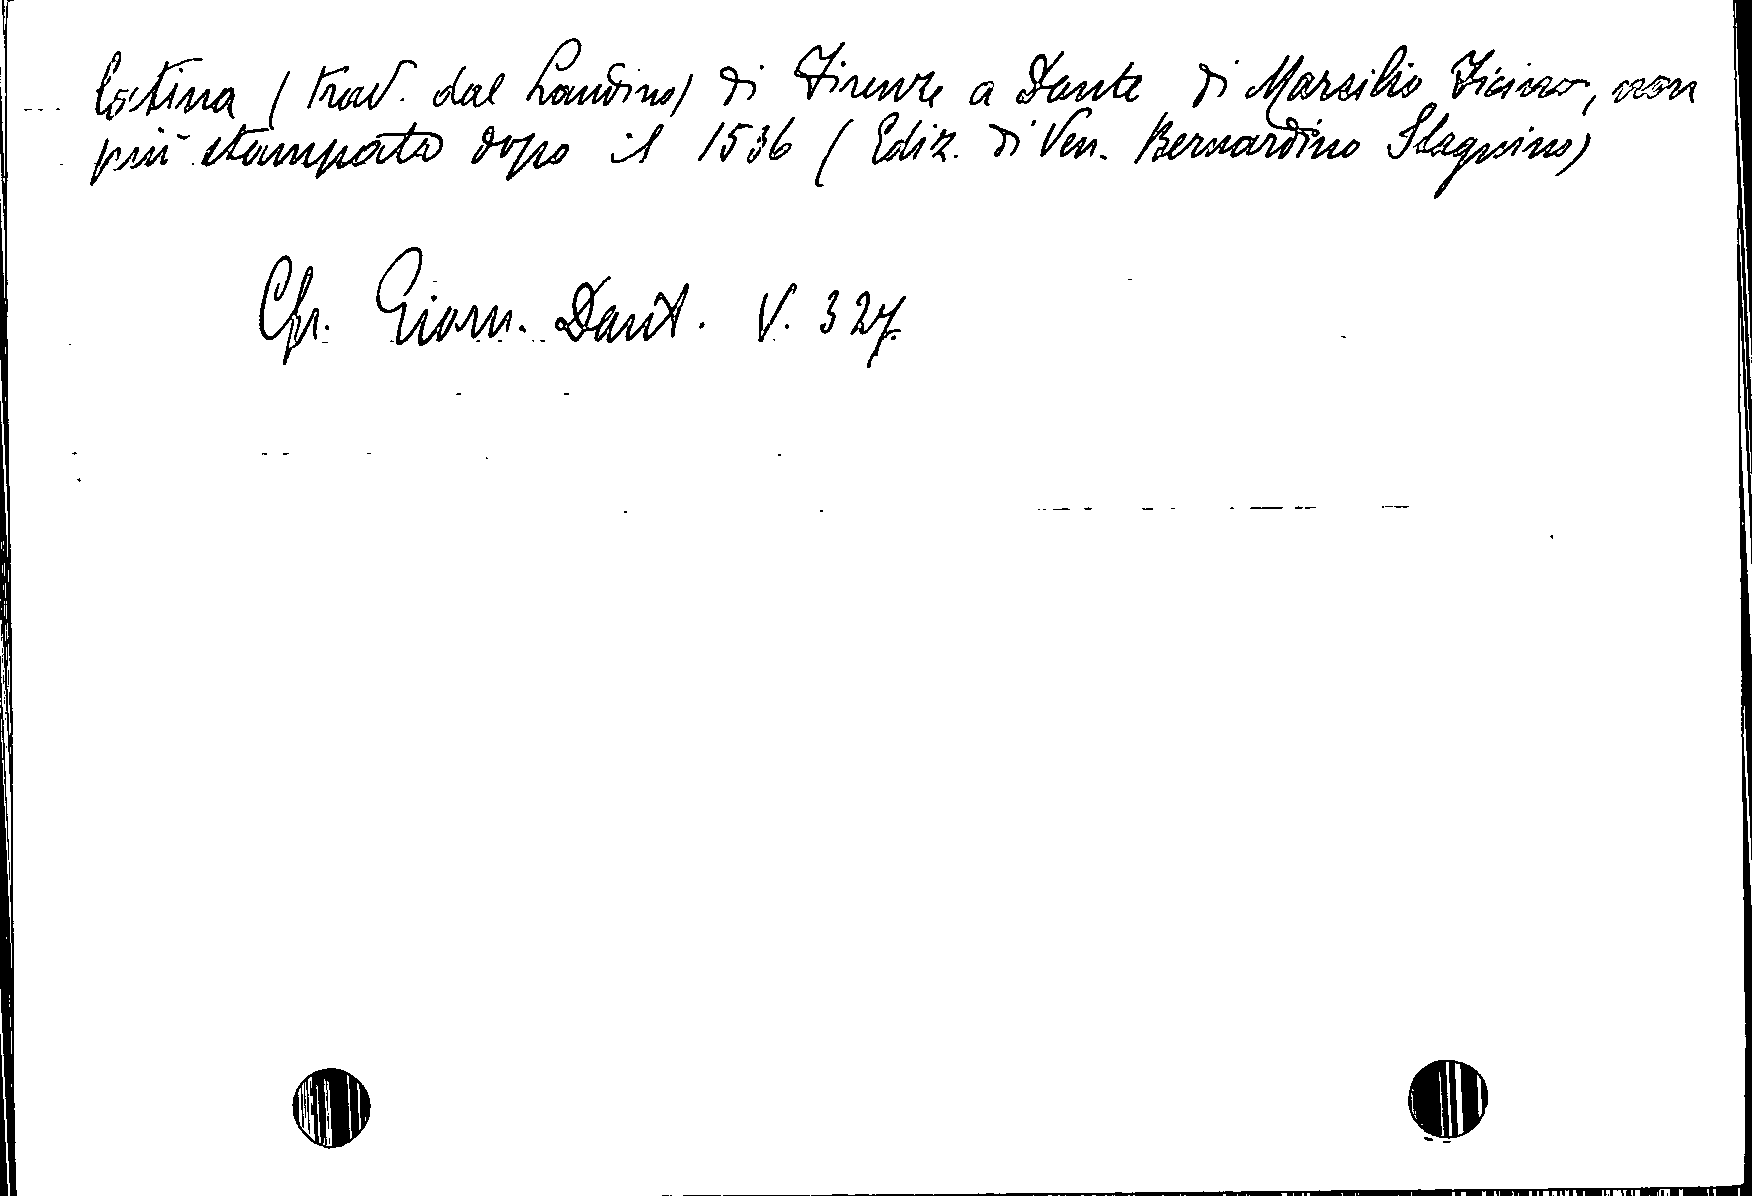 latina (trad. dal Landino) di Firenze a Dante di Marsilio Ficino, non
più stampata dopo il 1536 (Ediz. di Ven. Bernardino Stagnino)
Cfr. Giorn. Dant. V. 327.